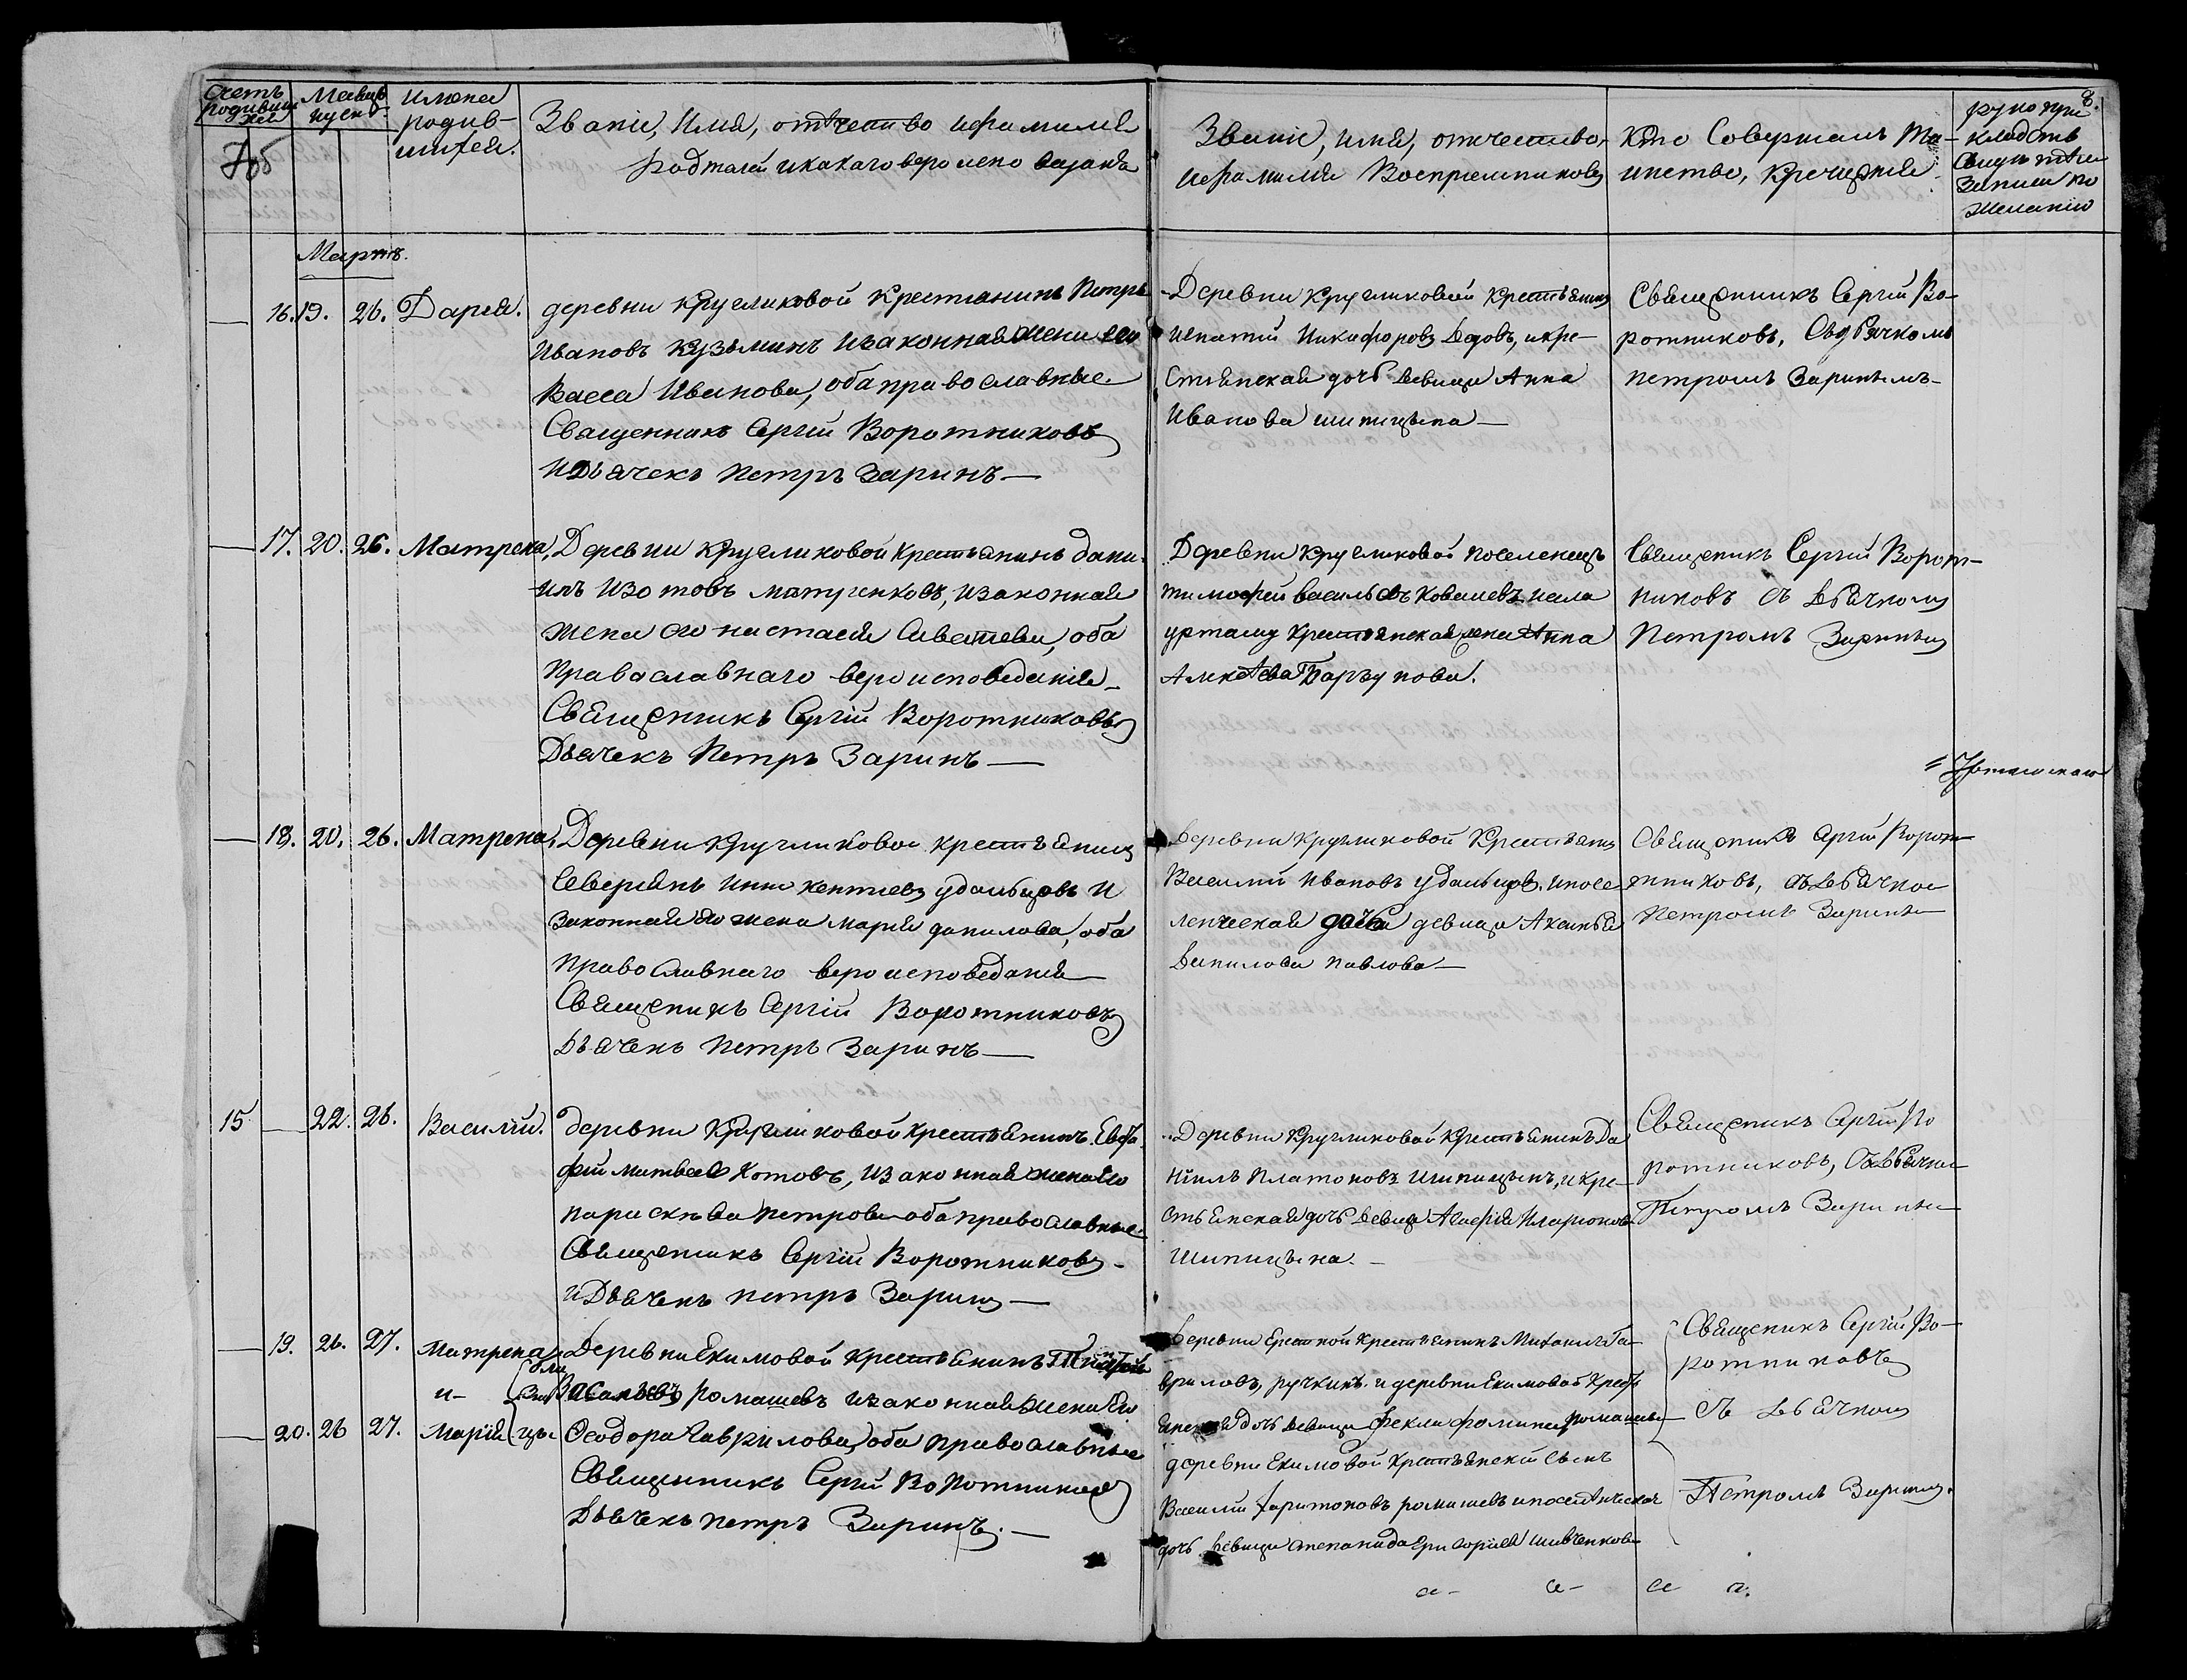 Счетъ родившихся
Месяцъ и день.
Имена родившихся.
Званіе, Имя, отчество и фамилія
Родителей и какаго вероисповеданія
Званіе, имя, отчество,
и фамилія Воспріемниковъ
Кто Совершалъ Та-
инство, Крещенія
рукопри-
кладств
Свидетелей
Записи по
Желанію
8.
Мартъ.
16. 19. 26. Дарья.
деревни Кругликовой Крестьянинъ Петръ
Ивановъ Кузьминъ и законная жена его
Васса Иванова, оба православные
Священникъ Сергій Воротниковъ
и Дьячекъ Петръ Заринъ —
Деревни Кругликовой Крестьянинъ
Игнатій Никифоровъ Дедовъ, и кре-
стьянская дочь девица Анна
Иванова Шипицына —
Священникъ Сергій Во-
ротниковъ, Съ дьячкомъ
Петромъ Заринымъ
17. 20. 26. Матрена,
Деревни Кругликовой Крестьянинъ Дани-
илъ Изотовъ Матугенковъ, и законная
жена его Настасія Саватеева, оба
Православнаго вероисповеданія
Священникъ Сергій Воротниковъ
Дьячекъ Петръ Заринъ —
Деревни Кругликовой поселенецъ
Тимофей Васильевъ Ковалевъ и села
уртаму Крестьянская жена Анна
Алексеева
Священикъ Сергій Ворот-
никовъ съ дьячкомъ
Петромъ Зариным
18. 20. 26. Матрена,
Деревни Кругликовой крестьянинъ
Северьянъ Иннокентиевъ Удальцовъ и
Законная его жена Марія Данилова, оба
Православнаго вероисповеданія
Священикъ Сергій Воротниковъ
Дьячекъ Петръ Заринъ —
Деревни Кругликовой Крестьянинъ
Василій Ивановъ Удальцовъ, и посе-
ленческая дочь девица Аксинья
Данилова Павлова —
Священикъ Сергій Ворот-
никовъ, съ дьячкомъ
Петромъ Зариным
15 — 22. 26. Василій.
деревни Кругликовой крестьянинъ
Матвеевъ Котовъ, и законная жена его
Парискева Петрова оба православные
Священикъ Сергій Воротниковъ
и Дьячекъ Петръ Заринъ —
Деревни Кругликовой Крестьянинъ Да-
ніилъ Платоновъ Шипицынъ, и кре-
стьянская дочь девица Агафія Иларионова
Шипицына. —
Священикъ Сергій Во-
ротниковъ, Съ дьячком
Петромъ Зариным
19. 26. 27. Матрена
и
близ-
не-
цы
20. 26 27. Марія
Деревни Екимовой Крестьянинъ
Васильевъ Ромашевъ и законная жена Его
Феодора Гаврилова, оба православные
Священникъ Сергій Воротниковъ
Дьячекъ Петръ Заринъ. —
Деревни Крестьянинъ Михаилъ Га-
вриловъ, Ручкинъ и деревни Екимовой Кресть-
янская дочь девица Фекла Фомина Ромашева
деревни Екимовой Крестьянскій сынъ
Василій Харитоновъ Ромашевъ и поселенческая
дочь девица Степанида Григорьева Шевченкова
Священикъ Сергій Во-
ротниковъ
съ дьячкомъ
Петромъ Зариным.